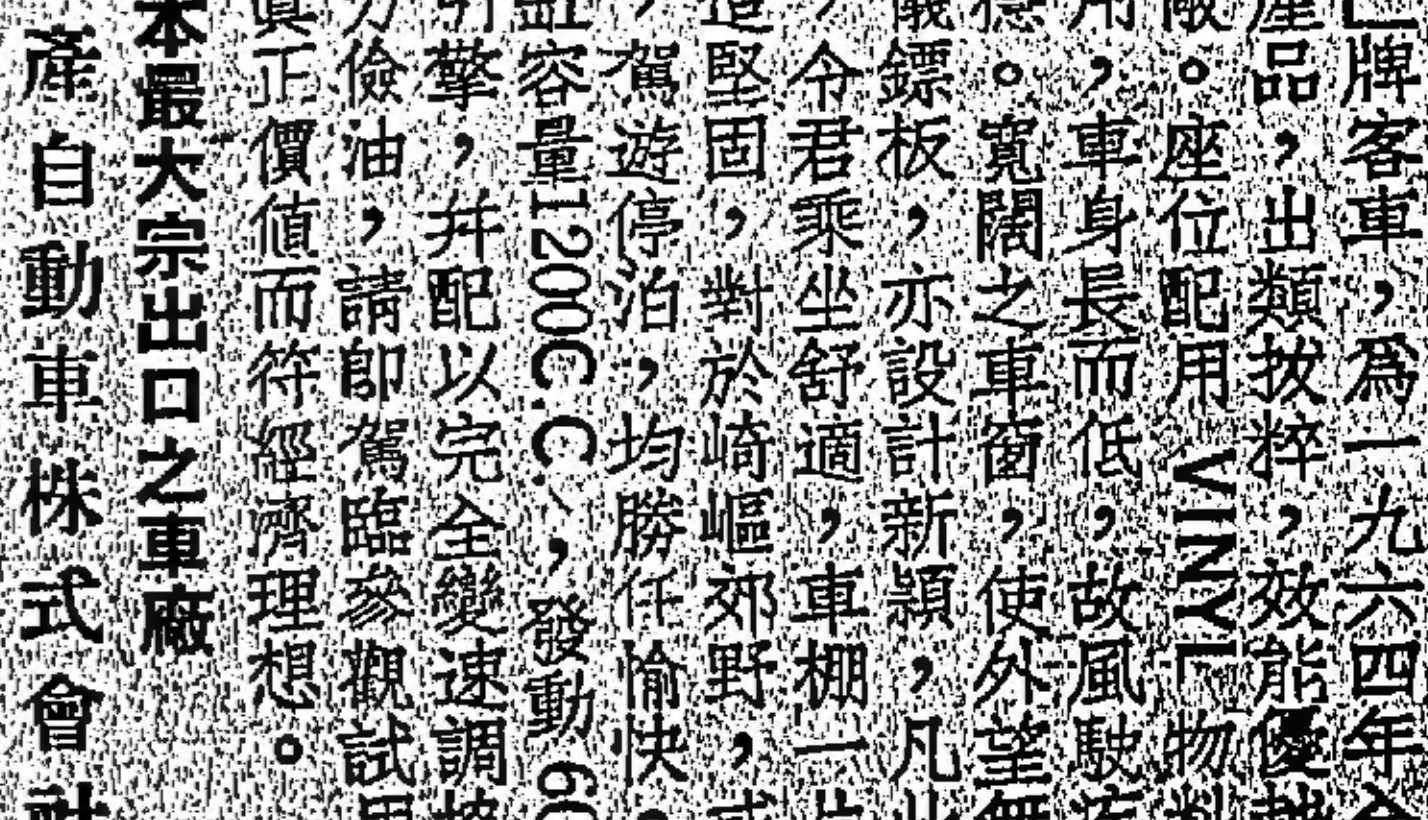 牌客車，爲一九六四年
產品，出類拔粹，效能優越
。座位配用VINYL物料
用，車身長而低，故風駛
。寬闊之車窗，使外望無
鏢板，亦設計新穎，凡此
，令君乘坐舒適，車棚一片
造堅固，對於崎嶇郊野，或
，駕遊停泊，均勝任愉快，
缸容量1200C.C.，發動60
引擎，幷配以完全變速調
力儉油，請卽駕臨參觀試用
眞正價值而符經濟理想。
本最大宗出口之車廠
產自動車株式會社